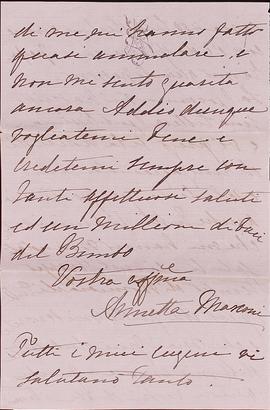 di me mi hanno fatto
quasi ammalare, e
non mi sento guarita
ancora Addio dunque
vogliatemi bene e
credetemi sempre con
tanti affettuosi saluti
ed un millione di baci
del Bimbo
Vostra affma
Annetta
Tutti i miei cugini vi
salutano tanto.